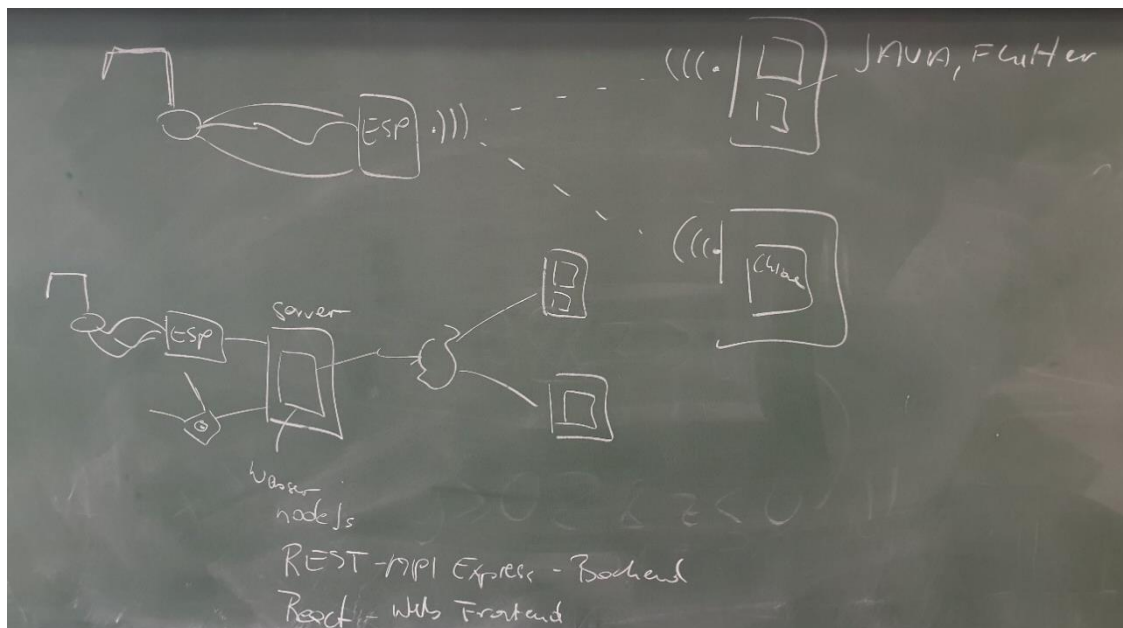 JAVA, Flutter
ESP
Chrome
server
ESP
Wasser
nodeJs
REST-API Express - Backend
React - Web Frontend